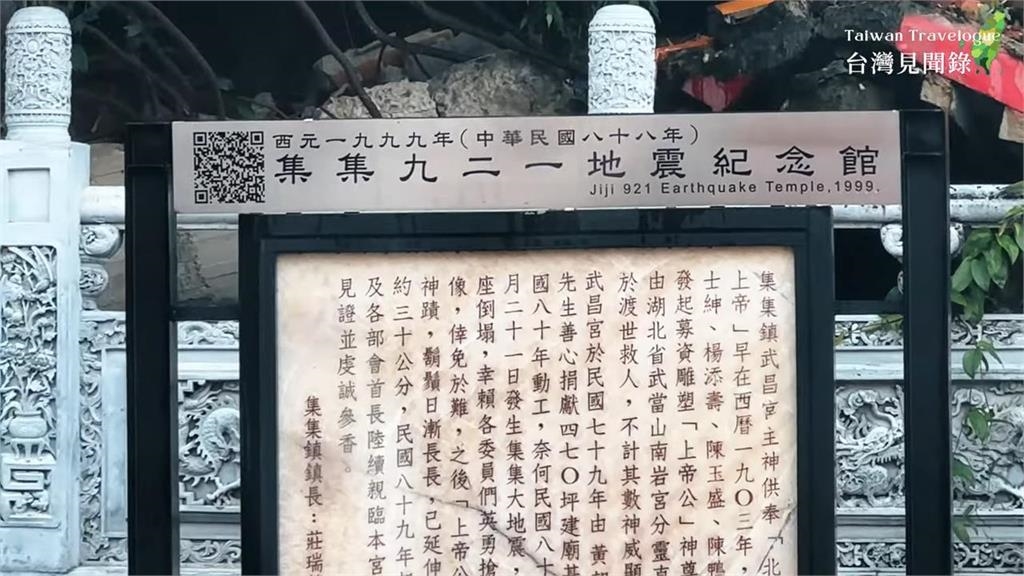 Taiwan Travelogue
台灣見聞錄
西元一九九九年(中華民國八十八年)
集集九二一地震紀念館
Jiji 921 Earthquake Temple,1999.
集集鎮武昌宮主神供奉「北
上帝」早在西曆一九〇三年，
士紳、楊添壽、陳玉盛、陳鴨
發起募資雕塑「上帝公」神尊
由湖北省武當山南岩宮分靈直
於渡世救人，不計其數神威顯
武昌宮於民國七十九年由 黃
先生善心捐獻四七〇坪建廟基
國八十年動工，奈何民國八十
月二十一日發生集集大地震，
座倒塌，幸賴各委員們英勇搶
像，倖免於難，之後「上帝公
神蹟，鬍鬚日漸長長，已延伸
約三十公分，民國八十九年
及各部會首長陸續親臨本宮
見證並虔誠參香。
集集鎮鎮長：莊瑞